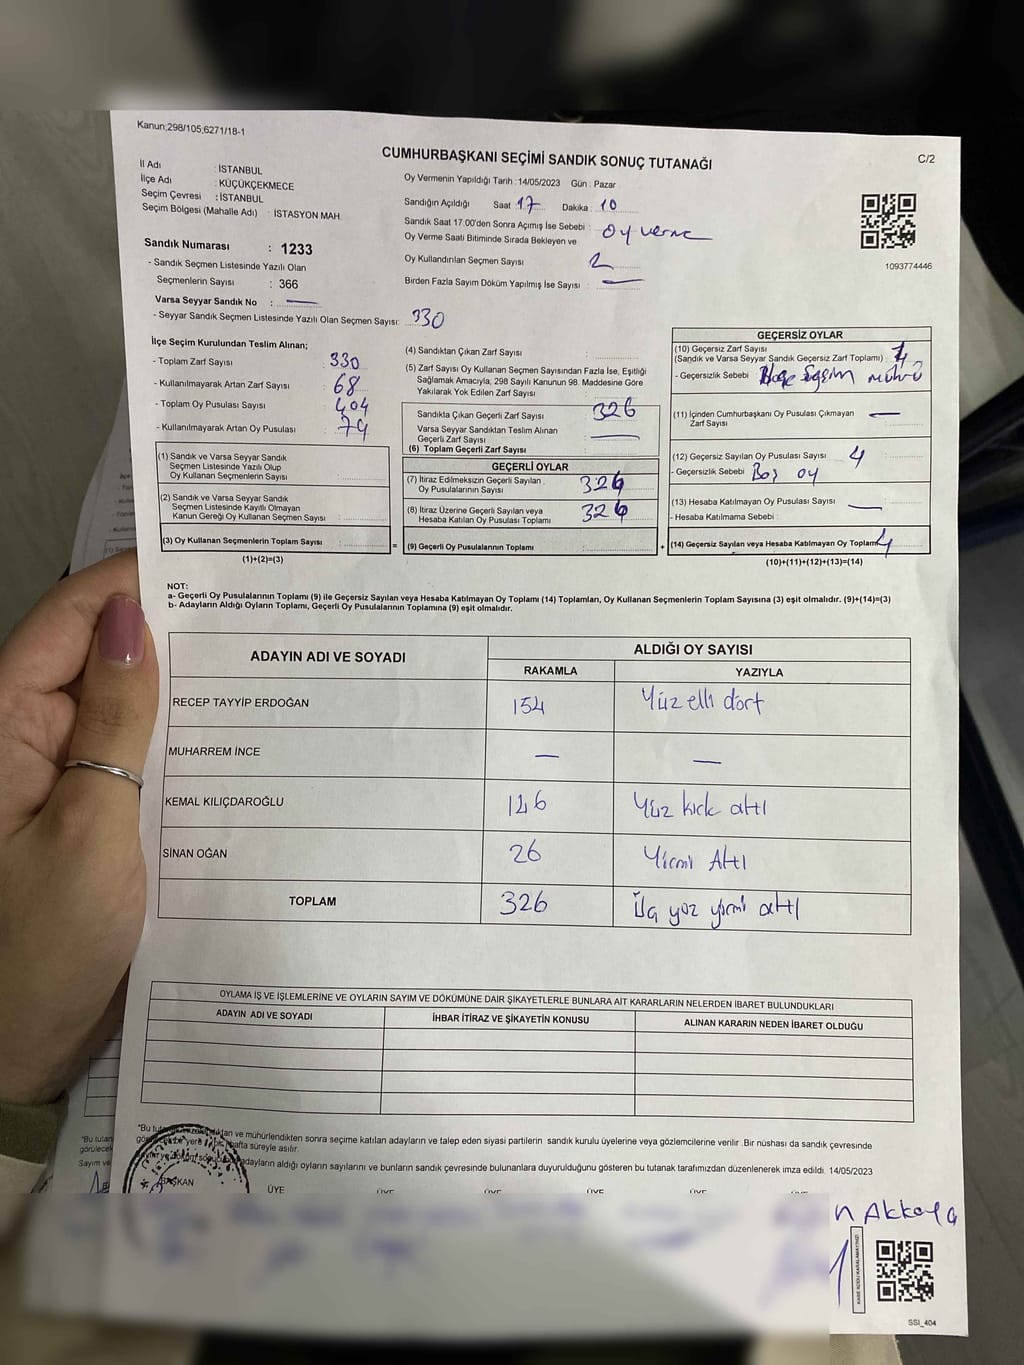 Kanun;298/105;6271/18-1
CUMHURBAŞKANI SEÇİMİ SANDIK SONUÇ TUTANAĞI
C/2
İl Adı : İSTANBUL
İlçe Adı : KÜÇÜKÇEKMECE
Seçim Çevresi : İSTANBUL
Seçim Bölgesi (Mahalle Adı) : İSTASYON MAH.
Sandık Numarası : 1233
- Sandık Seçmen Listesinde Yazılı Olan
Seçmenlerin Sayısı : 366
Varsa Seyyar Sandık No : —
- Seyyar Sandık Seçmen Listesinde Yazılı Olan Seçmen Sayısı: 330
Oy Vermenin Yapıldığı Tarih : 14/05/2023 Gün : Pazar
Sandığın Açıldığı Saat 17 Dakika : 10
Sandık Saat 17.00'den Sonra Açımış İse Sebebi : Oy verme
Oy Verme Saati Bitiminde Sırada Bekleyen ve
Oy Kullandırılan Seçmen Sayısı 2
Birden Fazla Sayım Döküm Yapılmış İse Sayısı : —
1093774446
İlçe Seçim Kurulundan Teslim Alınan;
- Toplam Zarf Sayısı : 330
- Kullanılmayarak Artan Zarf Sayısı : 68
- Toplam Oy Pusulası Sayısı : 404
- Kullanılmayarak Artan Oy Pusulası : 74
(1) Sandık ve Varsa Seyyar Sandık
Seçmen Listesinde Yazılı Olup
Oy Kullanan Seçmenlerin Sayısı :
(2) Sandık ve Varsa Seyyar Sandık
Seçmen Listesinde Kayıtlı Olmayan
Kanun Gereği Oy Kullanan Seçmen Sayısı :
(3) Oy Kullanan Seçmenlerin Toplam Sayısı :
(1)+(2)=(3)
(4) Sandıktan Çıkan Zarf Sayısı :
(5) Zarf Sayısı Oy Kullanan Seçmen Sayısından Fazla İse, Eşitliği
Sağlamak Amacıyla, 298 Sayılı Kanunun 98. Maddesine Göre
Yakılarak Yok Edilen Zarf Sayısı :
Sandıkta Çıkan Geçerli Zarf Sayısı 326
Varsa Seyyar Sandıktan Teslim Alınan
Geçerli Zarf Sayısı —
(6) Toplam Geçerli Zarf Sayısı
GEÇERLİ OYLAR
(7) İtiraz Edilmeksizin Geçerli Sayılan
Oy Pusulalarının Sayısı 326
(8) İtiraz Üzerine Geçerli Sayılan veya
Hesaba Katılan Oy Pusulası Toplamı 326
(9) Geçerli Oy Pusulalarının Toplamı
GEÇERSİZ OYLAR
(10) Geçersiz Zarf Sayısı
(Sandık ve Varsa Seyyar Sandık Geçersiz Zarf Toplamı) :
- Geçersizlik Sebebi mührü
(11) İçinden Cumhurbaşkanı Oy Pusulası Çıkmayan
Zarf Sayısı —
(12) Geçersiz Sayılan Oy Pusulası Sayısı 4
- Geçersizlik Sebebi Boş oy
(13) Hesaba Katılmayan Oy Pusulası Sayısı —
- Hesaba Katılmama Sebebi :
(14) Geçersiz Sayılan veya Hesaba Katılmayan Oy Toplamı 4
(10)+(11)+(12)+(13)=(14)
NOT:
a- Geçerli Oy Pusulalarının Toplamı (9) ile Geçersiz Sayılan veya Hesaba Katılmayan Oy Toplamı (14) Toplamları, Oy Kullanan Seçmenlerin Toplam Sayısına (3) eşit olmalıdır. (9)+(14)=(3)
b- Adayların Aldığı Oyların Toplamı, Geçerli Oy Pusulalarının Toplamına (9) eşit olmalıdır.
ADAYIN ADI VE SOYADI ALDIĞI OY SAYISI
RAKAMLA YAZIYLA
RECEP TAYYİP ERDOĞAN 154 Yüz elli dört
MUHARREM İNCE — —
KEMAL KILIÇDAROĞLU 146 Yüz kırk altı
SİNAN OĞAN 26 Yirmi Altı
TOPLAM 326 üç yüz yirmi altı
OYLAMA İŞ VE İŞLEMLERİNE VE OYLARIN SAYIM VE DÖKÜMÜNE DAİR ŞİKAYETLERLE BUNLARA AİT KARARLARIN NELERDEN İBARET BULUNDUKLARI
ADAYIN ADI VE SOYADI İHBAR İTİRAZ VE ŞİKAYETİN KONUSU ALINAN KARARIN NEDEN İBARET OLDUĞU
"Bu ve mühürlendikten sonra seçime katılan adayların ve talep eden siyasi partilerin sandık kurulu üyelerine veya gözlemcilerine verilir. Bir nüshası da sandık çevresinde
hafta süreyle asılır.
adayların aldığı oyların sayılarını ve bunların sandık çevresinde bulunanlara duyurulduğunu gösteren bu tutanak tarafımızdan düzenlenerek imza edildi. 14/05/2023
BAŞKAN ÜYE ÜYE ÜYE ÜYE ÜYE ÜYE
n Akkaya
SSI_404